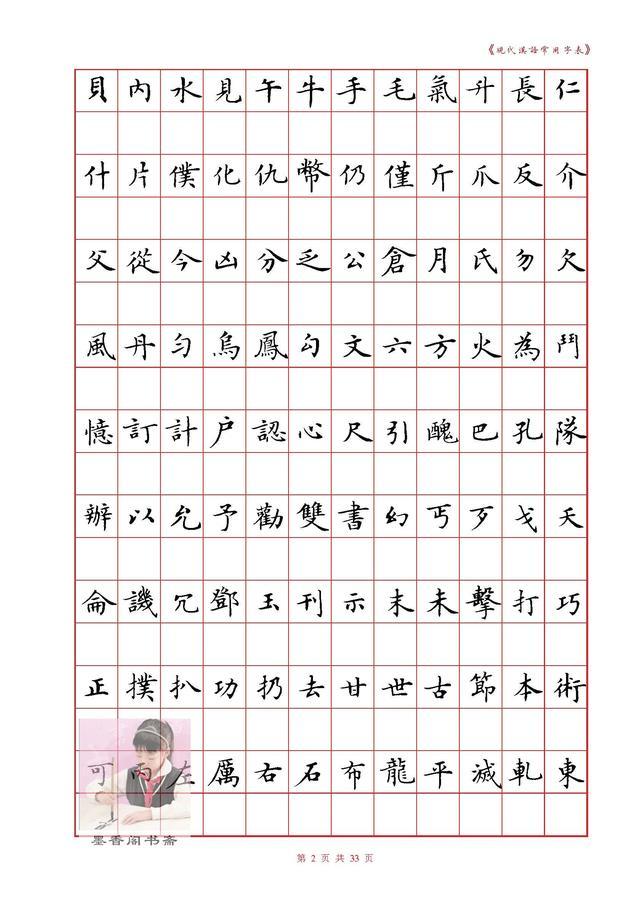 《現代漢語常用字表》
貝內水見午牛手毛氣升長仁
什片僕化仇幣仍僅斤爪反介
父從今凶分乏公倉月氏勿欠
風丹勻烏鳳勾文六方火為鬥
憶訂計戶認心尺引醜巴孔隊
辦以允予勸雙書幻丐歹戈夭
侖譏冗鄧玉刊示末未擊打巧
正撲扒功扔去甘世古節本術
可丙左厲右石布龍平滅軋東
墨香阁书斋
第 2 页 共 33 页